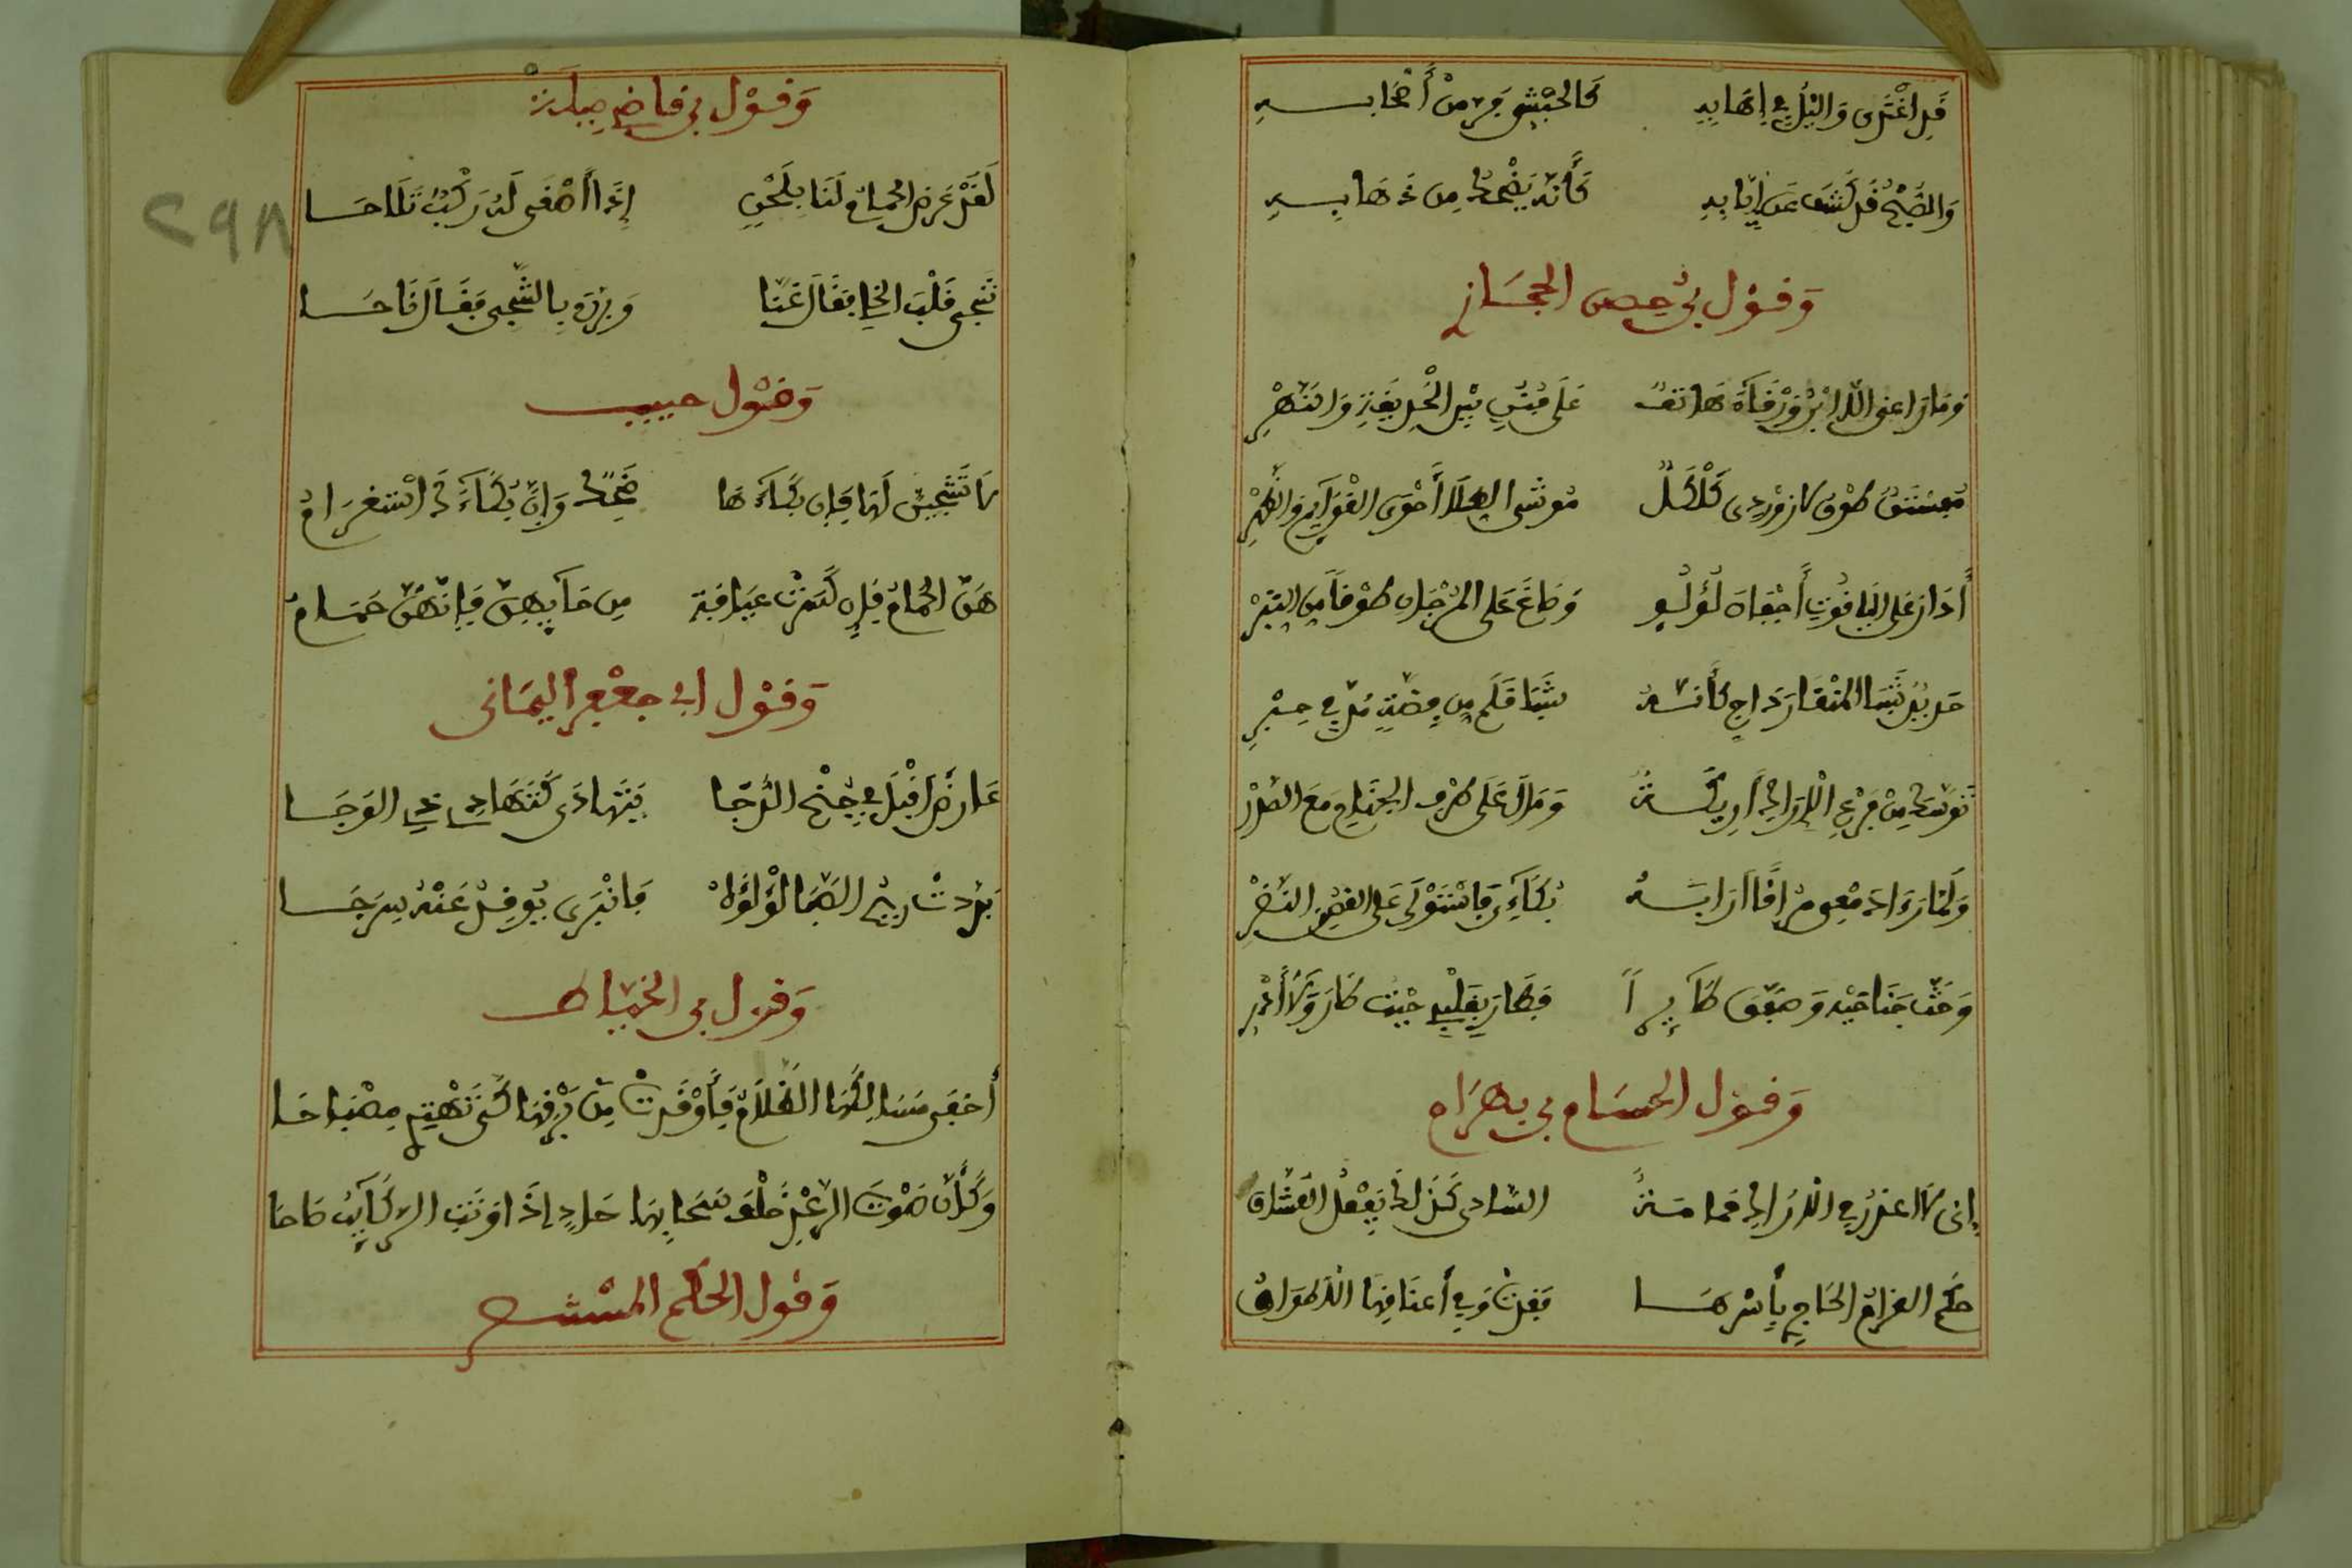 قَدِ اغْتَدِى وَالَّيْلُ فِى اِهَابِهِ كَالحَبْشِىّ فَرَّ مِنْ أَصْحَابِـــهِ
وَالصُّبْحُ قَدْ كَشَّفَ عَنْ اَنْيَابِهِ كَأَنَّهُ يَضْحَكُ مِن ذَهَابِـــهِ
وَقَوْل بْى حِصن الحِجَــازِ
وَمَا رَاعَنِى اِلّا ابْنُ وَرْقَآءَ هَاتِفٌ عَلَى فَنَنٍ بَيْنَ الْجَزِيرَةِ وَالنَّهْرِ
مُفَسْتَقُ طَوْقٍ لَازَوَرْدِى كَلْكَلٍ مُوَشّى الطُّلَا أَحْوَى القَوَادِمِ وَالظَّهْرِ
أَدَارَ عَلَى اليَاقُوتِ أَجْفَانَ لُؤْلُؤٍ وَصَاغَ عَلَى المَرْجَانِ طَوْقًا مِنَ التِّبْرِ
حَدِيدُ شَبَا المِنْقَارِ دَاجٍ كَأَنَّــهُ شَبَا قَلَمٍ مِن فِضَّةٍ مُدَّ فِى حِبْرِ
تَوَسَّدَ مِنْ فَرْعِ الْاَرَاكِ أَرِيكَــةً وَمَالَ عَلَى طَرْفِ الجَنَاحِ مَعَ الصَّدْرِ
وَلَمَّا رَءَا دَمْعِى مُرَاقًا اَرَابَــهُ بُكَآءِى فَاسْتَوْلَى عَلَى الغُصْنِ النَّضْرِ
وَحَثَّ جَنَاحَيْهِ وَصَفَّقَ طَآئِرًا فَطَارَ بِقَلْبِى حَيْثُ طَارَ وَلَا أَدْرِى
وَقَوْل الحُسَام بى بهرَام
اِنى لَاَعذرُ فِى الْاَرَاكِ حَمَامَــةَ الشّادِى كَذَلِكَ يَفْعَلُ العُشّاق
حكم الغرامُ الحَاجِرِى بِأَسْرِهَــا فَغَدَتْ وَفِى أَعنَاقِهَا الْاَطوَاقُ
وَقَوْل بى قاضِى مِيلَة
لَقَدْ عَرَضَ الحمامُ لَنَا بِلَحْنٍ إِذَا أَصْغَى لَهُ رَكْبٌ تَلَاحَــا
شَجَى قَلْبَ الخَلِى فَقَالَ غَنّا وَبَرَّحَ بِالشَّجِى فَقَالَ نَاحَــا
وَقَوْل حبيب
لَا تَشْجِيَنَّ لَهَا فَإِنَّ بُكَآءَهَا ضَحِكٌ وَإِنَّ بُكَآءَكَ اسْتِغْرَامُ
هُنَّ الحَمَامُ فَإِن كَسَرْتَ عِيَافَةً مِن حَآئِهِنَّ فَإِنَّهُنَّ حِمَــامُ
وَقَوْل ابى جعفر اليمَانى
عَارِضٌ أَقْبَلَ فِى جُنْحِ الدُّجَا يَتَهَادَى كَتَهَادِى ذِى الوَجَــا
بَدَّدَتْ رِيحُ الصَّبَا لُؤْلُؤَهُ فَانْبَرَى يُوقِدُ عَنْهُ سُرُجَــا
وَقَوْل بى الخيّاط
أَخفَى مَسَالِكَهَا الظَّلَامُ فَأَوْقَدَتْ مِنْ بَرْقِهَا كَىْ تَهْتَدِى مِصْبَاحَا
وَكَأَنَّ صَوْتَ الرَّعْدِ خَلْفَ سَحَابِهَا حَادٍ إِذَا وَنَتِ الرَّكَآئِبُ صَاحَا
وَقَوْل الحَكَم المسْتَنْـــصِر
٢٩٨